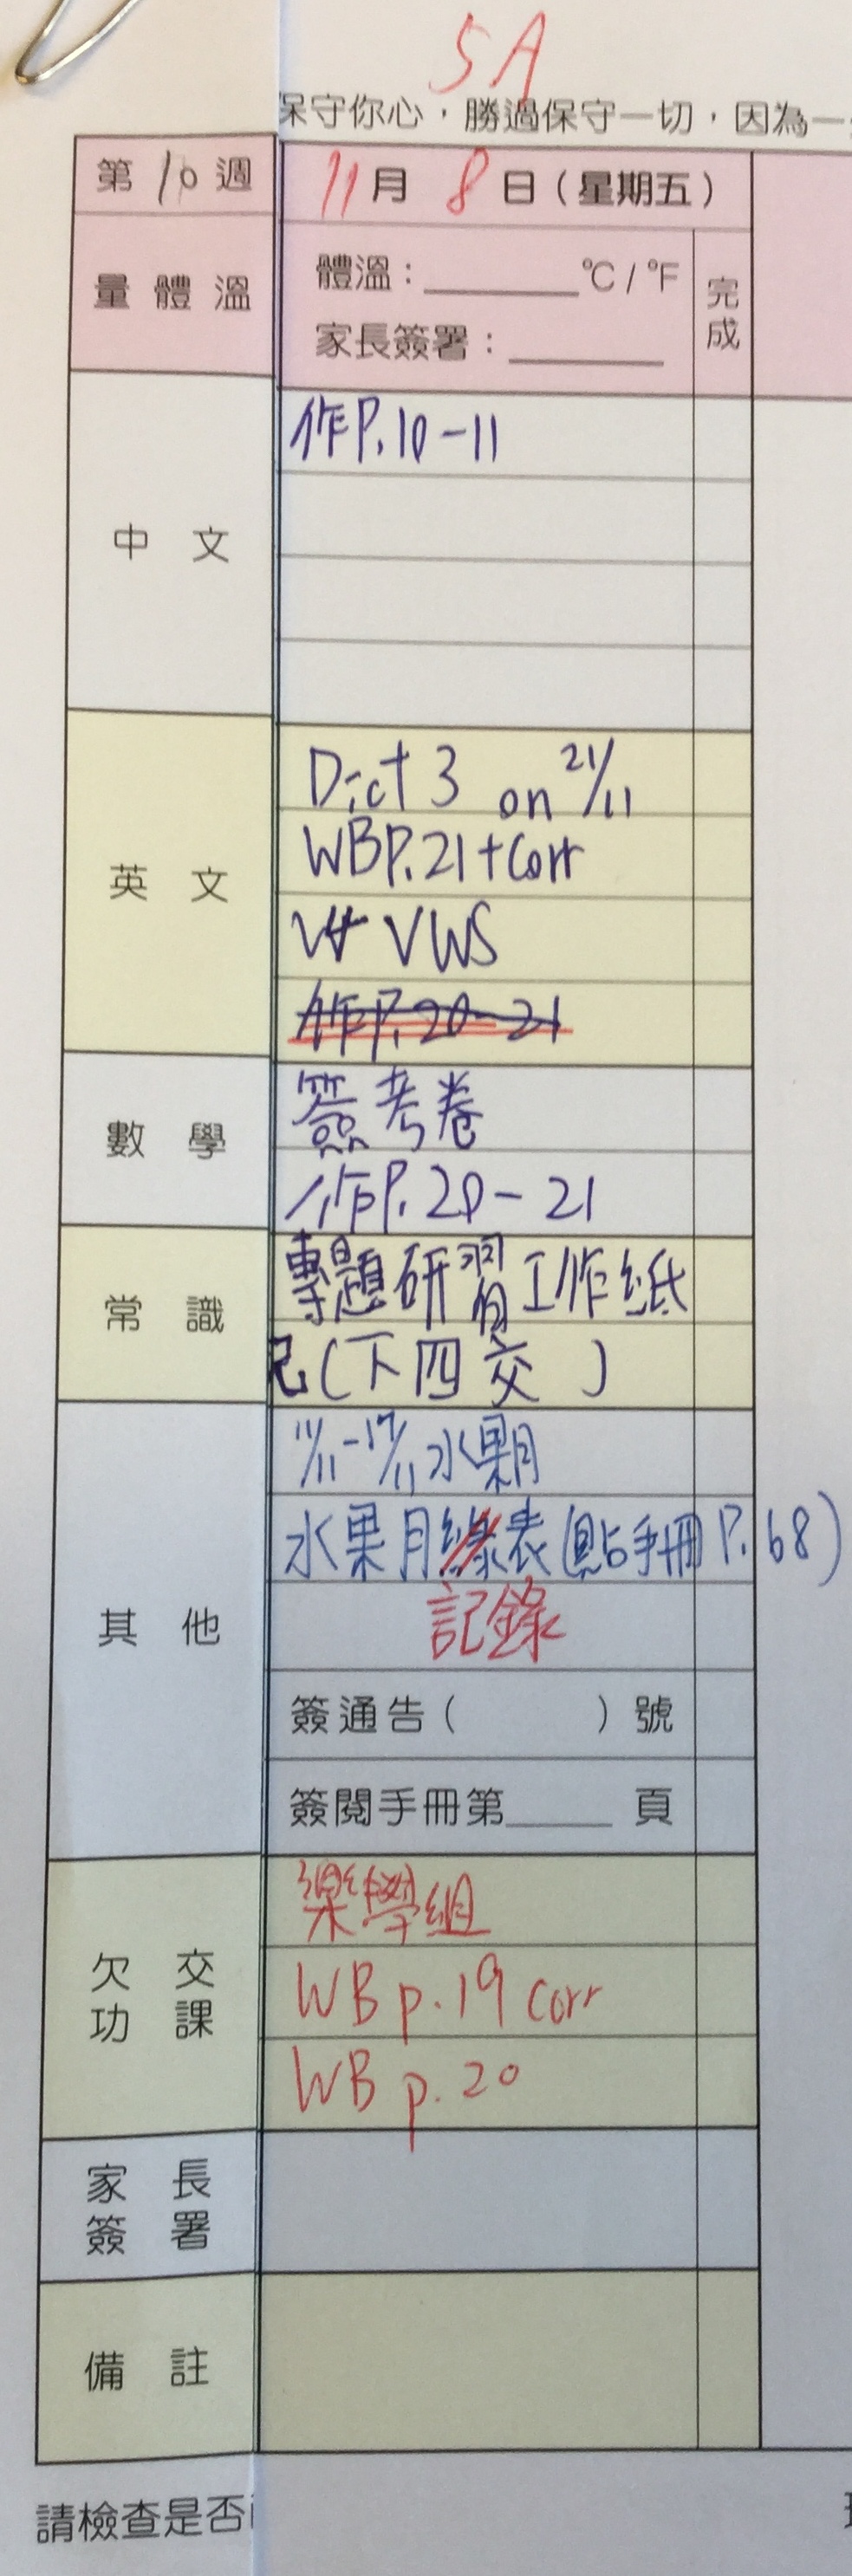 5A
保守你心，勝過保守一切，因為一
第10週
11月8日（星期五）
量體溫
體溫：______℃/℉
家長簽署：______
完成
中文
作P.10-11
英文
Dict 3 on 21/11
WBP.21+Corr
VWS
作P.20-21
數學
簽考卷
作P.20-21
常識
專題研習工作紙
(下四交)
其他
11/11-17/11水果月
水果月表(貼手冊P.68)
記錄
簽通告（ ）號
簽閱手冊第____頁
欠交功課
樂學組
WB p.19 corr
WB p.20
家長簽署
備註
請檢查是否